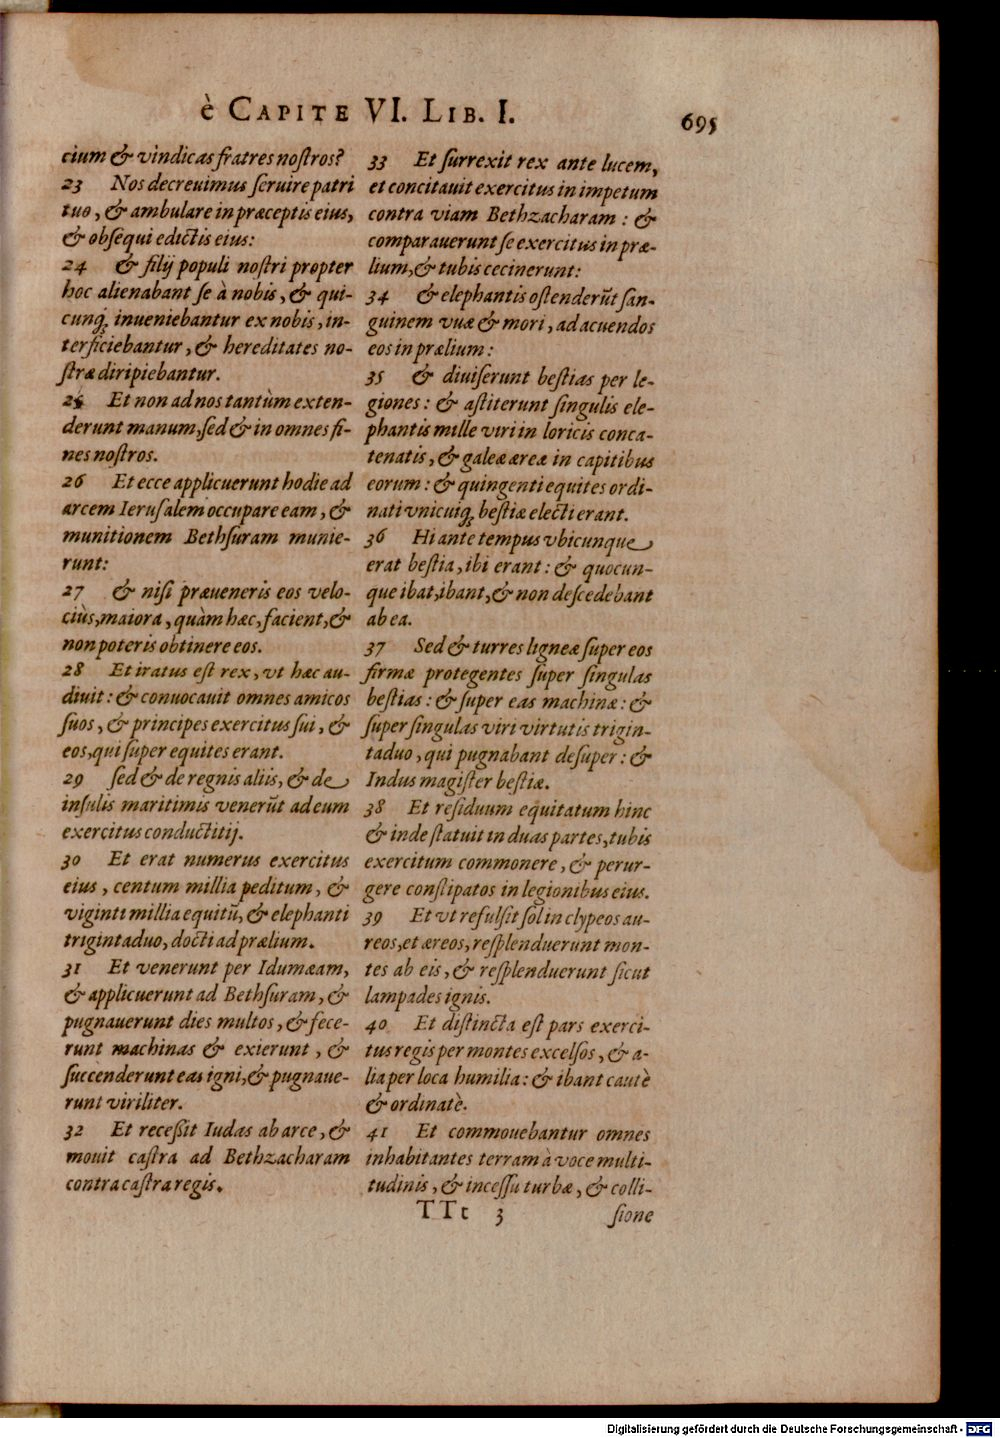 è CAPITE VI. LIB. I.
695
cium & vindicas fratres noſtros?
23 Nos decreuimus ſeruire patri
tuo, & ambulare in præceptis eius,
& obſequi edictis eius:
24 & filij populi noſtri propter
hoc alienabant ſe à nobis, & qui-
cunq; inueniebantur ex nobis, in-
terficiebantur, & hereditates no-
ſtræ diripiebantur.
25 Et non ad nos tantùm exten-
derunt manum, ſed & in omnes fi-
nes noſtros.
26 Et ecce applicuerunt hodie ad
arcem Ieruſalem occupare eam, &
munitionem Bethſuram munie-
runt:
27 & niſi præueneris eos velo-
ciùs, maiora, quàm hæc, facient, &
non poteris obtinere eos.
28 Et iratus eſt rex, vt hæc au-
diuit: & conuocauit omnes amicos
ſuos, & principes exercitus ſui, &
eos, qui ſuper equites erant.
29 ſed & de regnis aliis, & de
inſulis maritimis venerūt ad eum
exercitus conductitij.
30 Et erat numerus exercitus
eius, centum millia peditum, &
viginti millia equitū, & elephanti
triginta duo, docti ad prælium.
31 Et venerunt per Idumæam,
& applicuerunt ad Bethſuram, &
pugnauerunt dies multos, & fece-
runt machinas & exierunt, &
ſuccenderunt eas igni, & pugnaue-
runt viriliter.
32 Et receßit Iudas ab arce, &
mouit caſtra ad Bethzacharam
contra caſtra regis.
33 Et ſurrexit rex ante lucem,
et concitauit exercitus in impetum
contra viam Bethzacharam: &
comparauerunt ſe exercitus in præ-
lium, & tubis cecinerunt:
34 & elephantis oſtenderūt ſan-
guinem vuæ & mori, ad acuendos
eos in prælium:
35 & diuiſerunt beſtias per le-
giones: & aſtiterunt ſingulis ele-
phantis mille viri in loricis conca-
tenatis, & galeæ æreæ in capitibus
eorum: & quingenti equites ordi-
nati vnicuiq; beſtiæ electi erant.
36 Hi ante tempus vbicunque
erat beſtia, ibi erant: & quocun-
que ibat, ibant, & non deſcedebant
ab ea.
37 Sed & turres ligneæ ſuper eos
firmæ protegentes ſuper ſingulas
beſtias: & ſuper eas machinæ: &
ſuper ſingulas viri virtutis trigin-
ta duo, qui pugnabant deſuper: &
Indus magiſter beſtiæ.
38 Et reſiduum equitatum hinc
& inde ſtatuit in duas partes, tubis
exercitum commonere, & perur-
gere conſtipatos in legionibus eius.
39 Et vt refulſit ſol in clypeos au-
reos, et æreos, reſplenduerunt mon-
tes ab eis, & reſplenduerunt ſicut
lampades ignis.
40 Et diſtincta eſt pars exerci-
tus regis per montes excelſos, & a-
lia per loca humilia: & ibant cautè
& ordinatè.
41 Et commouebantur omnes
inhabitantes terram à voce multi-
tudinis, & inceſſu turbæ, & colli-
TTt 3
ſione
Digitalisierung gefördert durch die Deutsche Forschungsgemeinschaft - DFG